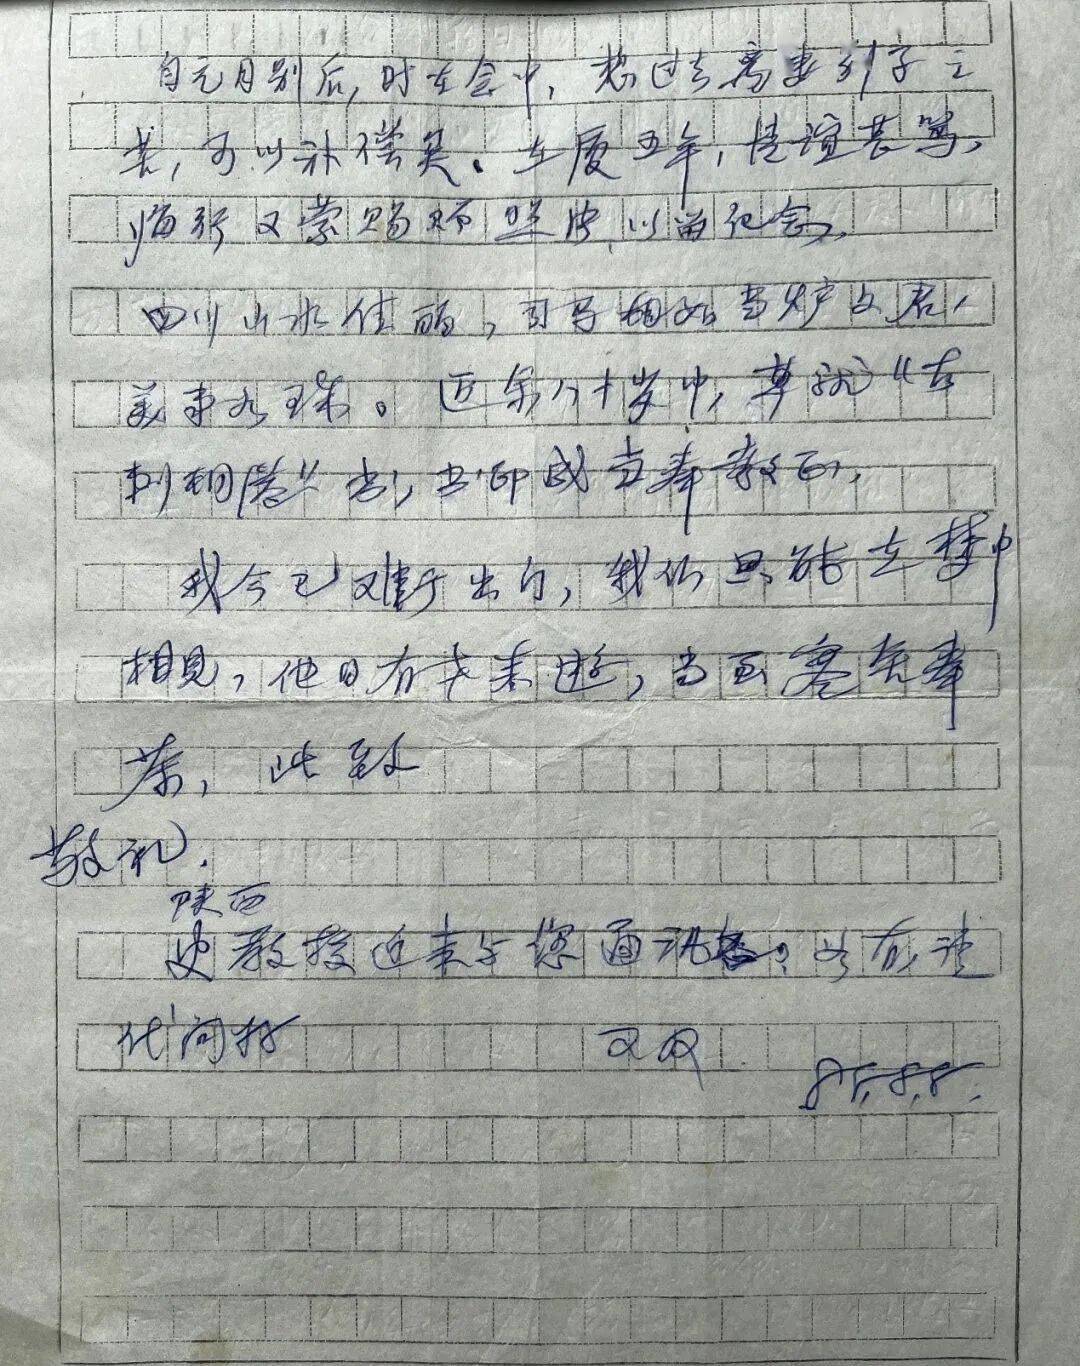 自元月别后，时在念中，想过去离妻别子之
苦，可以补偿矣。在厦五年，情谊甚笃，
临行又蒙赐赠照片，以留纪念。
四川山水佳丽，司马相如当炉文君，
美事如珠。近余八十岁中，草就《古
刺桐港》书，书印成当奉教正，
我今已难于出门，我们只能在梦中
相见，他日有才来游，当至寒舍奉
茶，此致
敬礼．
陕西
史教授近来与您通讯否。如有请
代问好
又及
85.8.8.